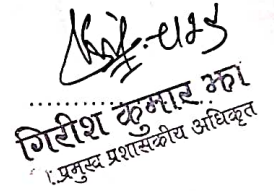 गिरीश कुमार झा
प्रमुख प्रशासकीय अधिकृत